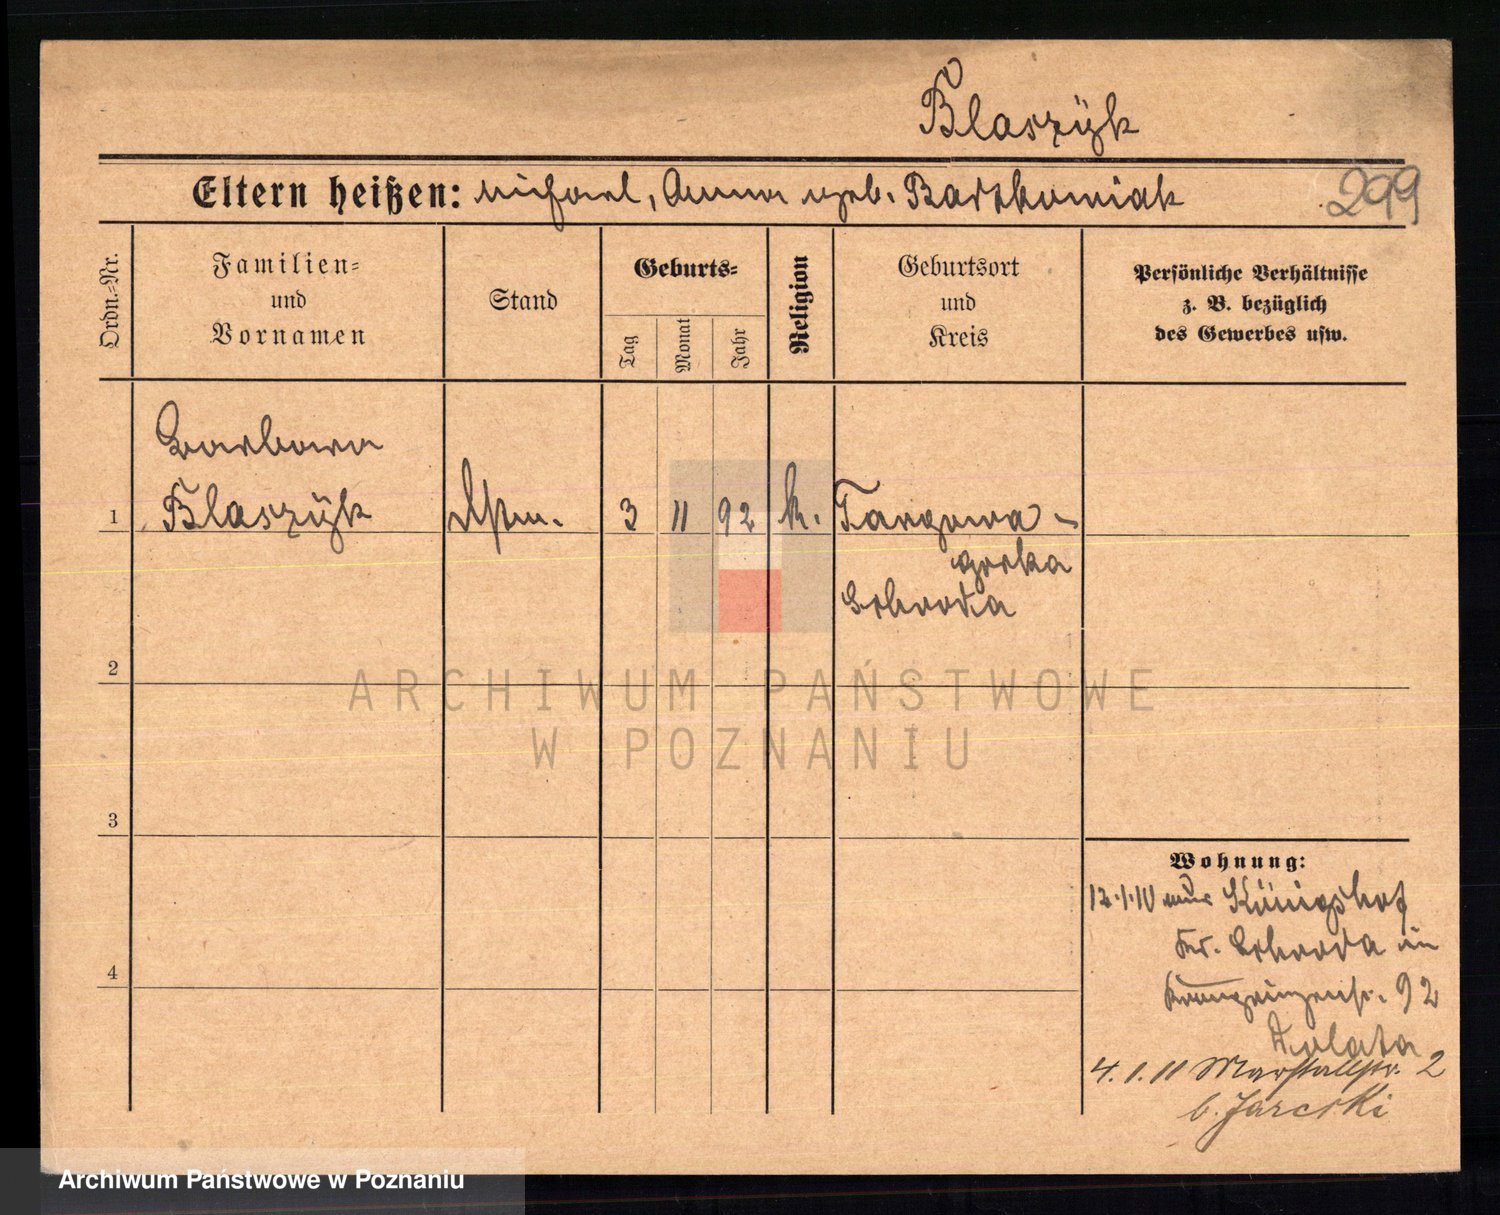 Blaszÿk
Eltern heißen: Michael, Anna geb. Bartkowiak
299
Ordn.=Nr.
Familien=
und
Vornamen
Stand
Geburts=
Tag
Monat
Jahr
Religion
Geburtsort
und
Kreis
Persönliche Verhältnisse
z. B. bezüglich
des Gewerbes usw.
Barbara
1 Blaszÿk 3 11 92 k. Targowa-
gorka
Schroda
2
3
4
ARCHIWUM PAŃSTWOWE
W POZNANIU
Wohnung:
12.1.10 aus Königshof
Kr. Schroda in
Kronprinzenstr. 92
4.1.11 Marstallstr. 2
b. Jarcski
Archiwum Państwowe w Poznaniu